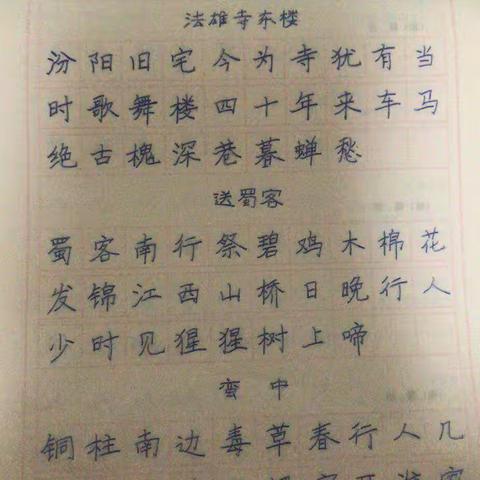 法雄寺东楼
汾阳旧宅今为寺犹有当
时歌舞楼四十年来车马
绝古槐深巷暮蝉愁
送蜀客
蜀客南行祭碧鸡木棉花
发锦江西山桥日晚行人
少时见猩猩树上啼
蛮中
铜柱南边毒草春行人几